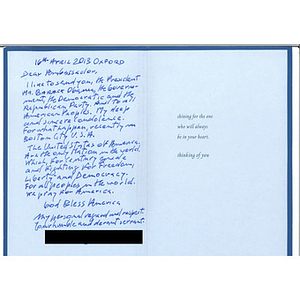 16th April 2013 Oxford
Dear Ambassador,
I like to send you, He President
Mr. Barack Obama, He Govern-
ment, He Democratic and He
Republican Party. And to All
American Peoples. My deep
and sincere condolence.
For what happen, recently in
Boston City U.S.A.
The United States of America.
Are the only Nation in the world.
Which for centery guide
and Fighting for Freedom,
Liberty and Democracy.
For all peoples in the world.
We pray for America.
God Bless America
My personal regard and respect
humble and devout servant.
shining for the one
who will always
be in your heart.
thinking of you